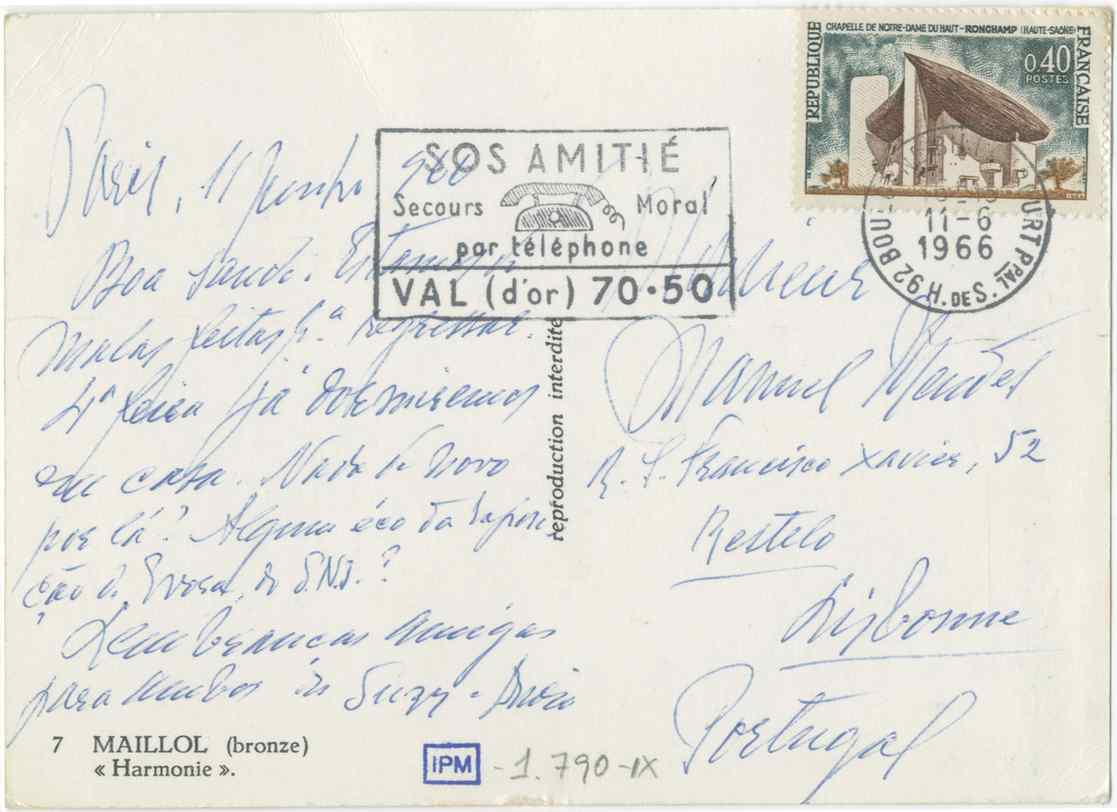 Paris, 11 Junho 966
Boa saude. Estamos
malas feitas pª regressar.
4ª feira já dormiremos
em casa. Nada de novo
por lá? Algum éco da exposi-
ção de Evora, do S.N.I.?
Lembranças amigas
para ambos de Suzy - Dário
7 MAILLOL (bronze)
« Harmonie ».
SOS AMITIÉ
Secours Moral
par téléphone
VAL (d'or) 70•50
reproduction interdite
CHAPELLE DE NOTRE-DAME DU HAUT - RONCHAMP (HAUTE-SAÔNE)
RÉPUBLIQUE FRANÇAISE
0,40
POSTES
11-6
1966
92 H. DE S.
PPAL
Monsieur
Manuel Mendes
R. S. Francisco Xavier, 52
Restelo
Lisbonne
Portugal
IPM
-1.790-IX